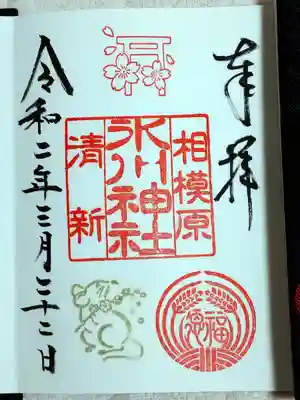 奉拝
相模原
氷川神社
清新
福
徳
令和二年三月二十二日